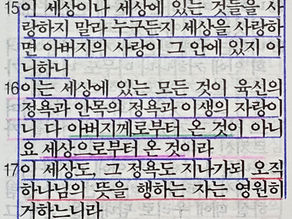 15이 세상이나 세상에 있는 것들을 사
랑하지 말라 누구든지 세상을 사랑하
면 아버지의 사랑이 그 안에 있지 아
니하니
16이는 세상에 있는 모든 것이 육신의
정욕과 안목의 정욕과 이생의 자랑이
니 다 아버지께로부터 온 것이 아니
요 세상으로부터 온 것이라
17이 세상도, 그 정욕도 지나가되, 오직
하나님의 뜻을 행하는 자는 영원히
거하느니라